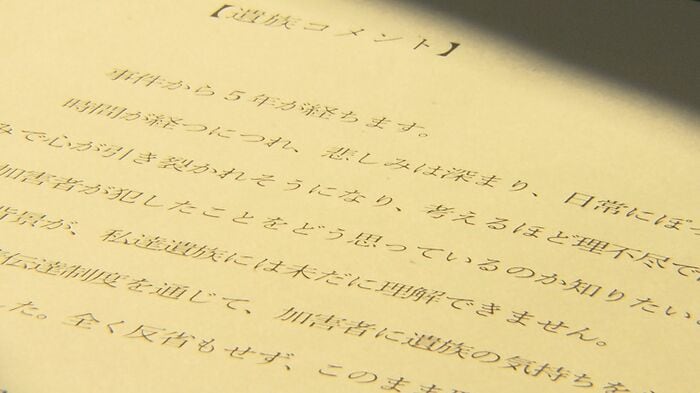 【遺族コメント】
事件から5年が経ちます。
時間が経つにつれ、悲しみは深まり、日常にぽっ
みで心が引き裂かれそうになり、考えるほど理不尽で
加害者が犯したことをどう思っているのか知りたい。
背景が、私達遺族には未だに理解できません。
伝達制度を通じて、加害者に遺族の気持ちを
した。全く反省もせず、このまま